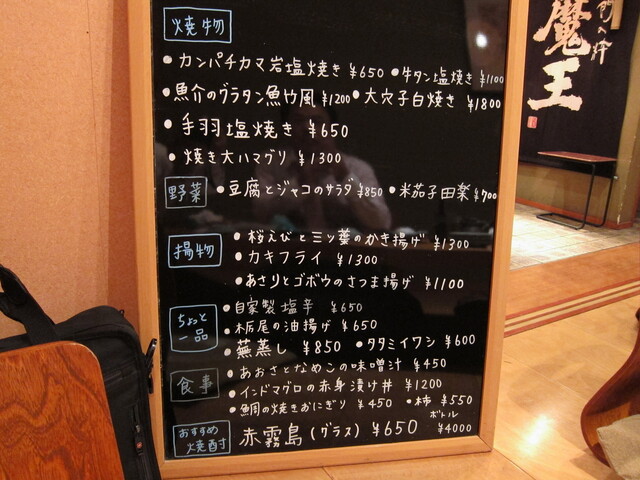 焼物
・カンパチカマ岩塩焼き ¥650 ・牛タン塩焼き ¥1100
・魚介のグラタン魚や風 ¥1200 ・大穴子白焼き ¥1800
・手羽塩焼き ¥650
・焼き大ハマグリ ¥1300
野菜 ・豆腐とジャコのサラダ ¥850 ・米茄子田楽 ¥700
揚物 ・桜えびと三ッ葉のかき揚げ ¥1300
・カキフライ ¥1300
・あさりとゴボウのさつま揚げ ¥1100
ちょっと一品 ・自家製塩辛 ¥650
・栃尾の油揚げ ¥650
・蕪蒸し ¥850 ・タタミイワシ ¥600
食事 ・あおさとなめこの味噌汁 ¥450
・インドマグロの赤身漬け丼 ¥1200
・鯛の焼きおにぎり ¥450 ・柿 ¥550
おすすめ焼酎 赤霧島(グラス) ¥650 ボトル ¥4000
魔王